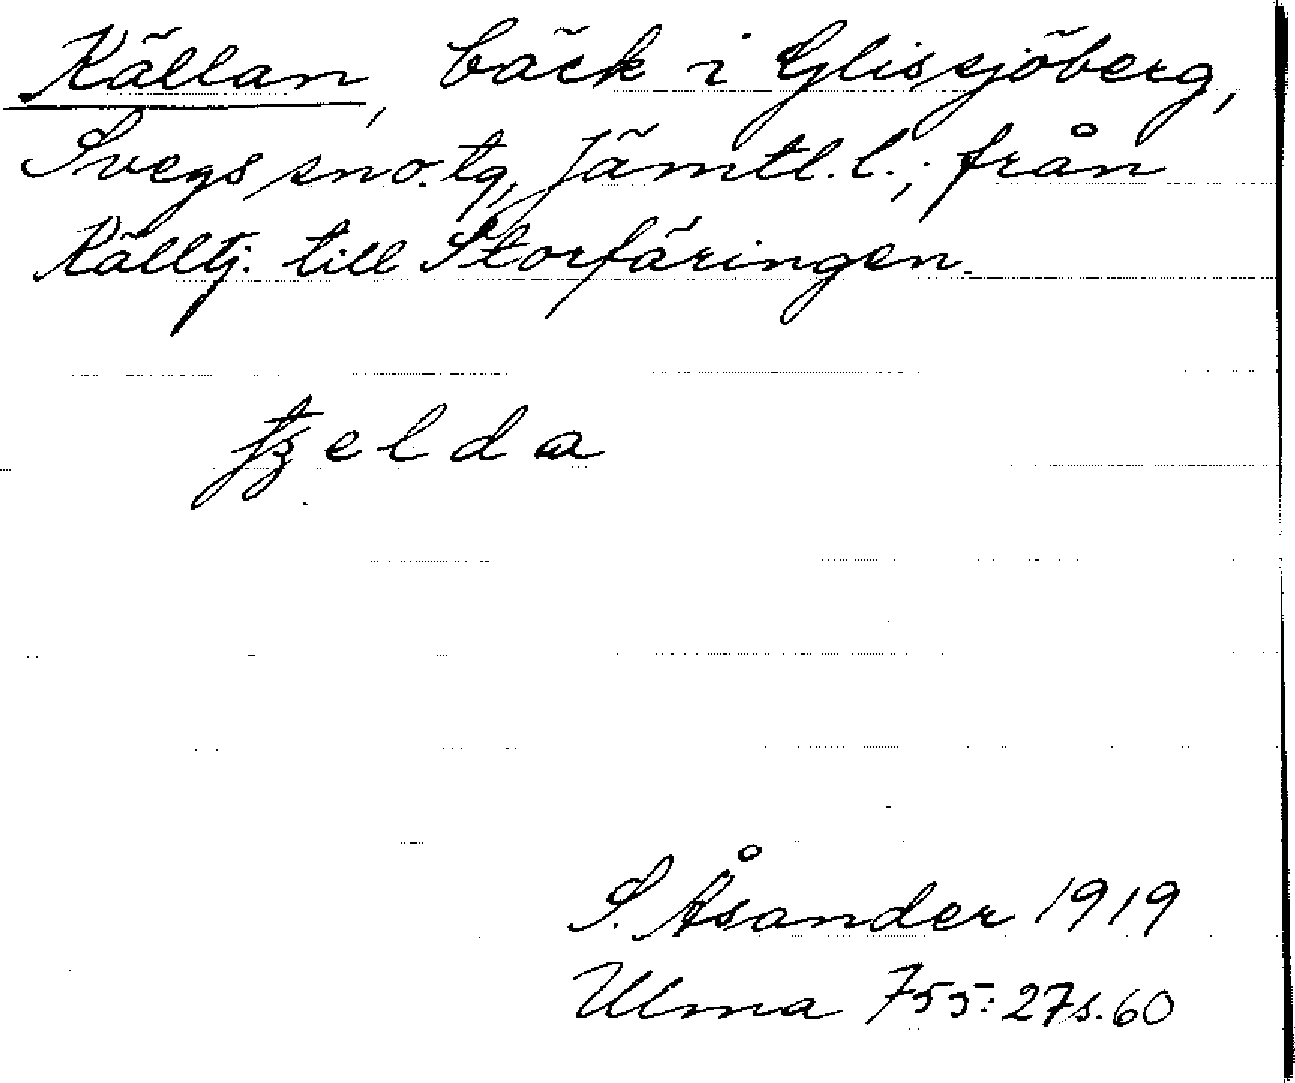 Källan, bäck i Glissjöberg,
Svegs sno. tg, Jämtl. l.; från
Källtj. till Storfäringen.
S. Åsander 1919
Ulma 755:27 s. 60